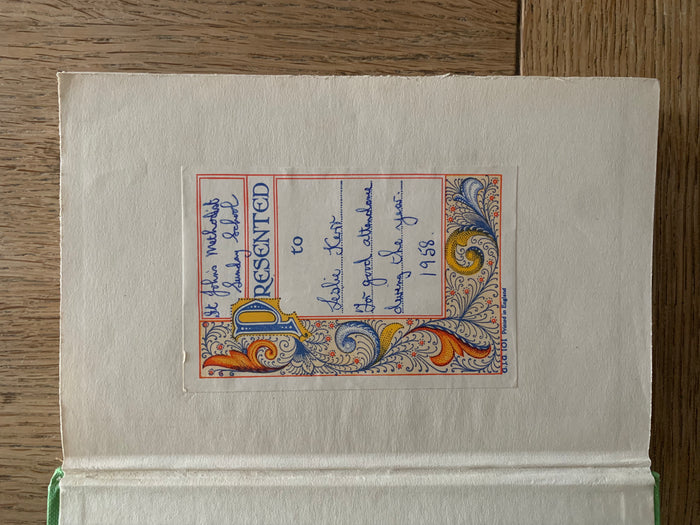 St Johns Methodist
Sunday School
PRESENTED
to
Leslie Kerr
For good attendance
during the year.
1958.
G.J.G 101 Printed in England